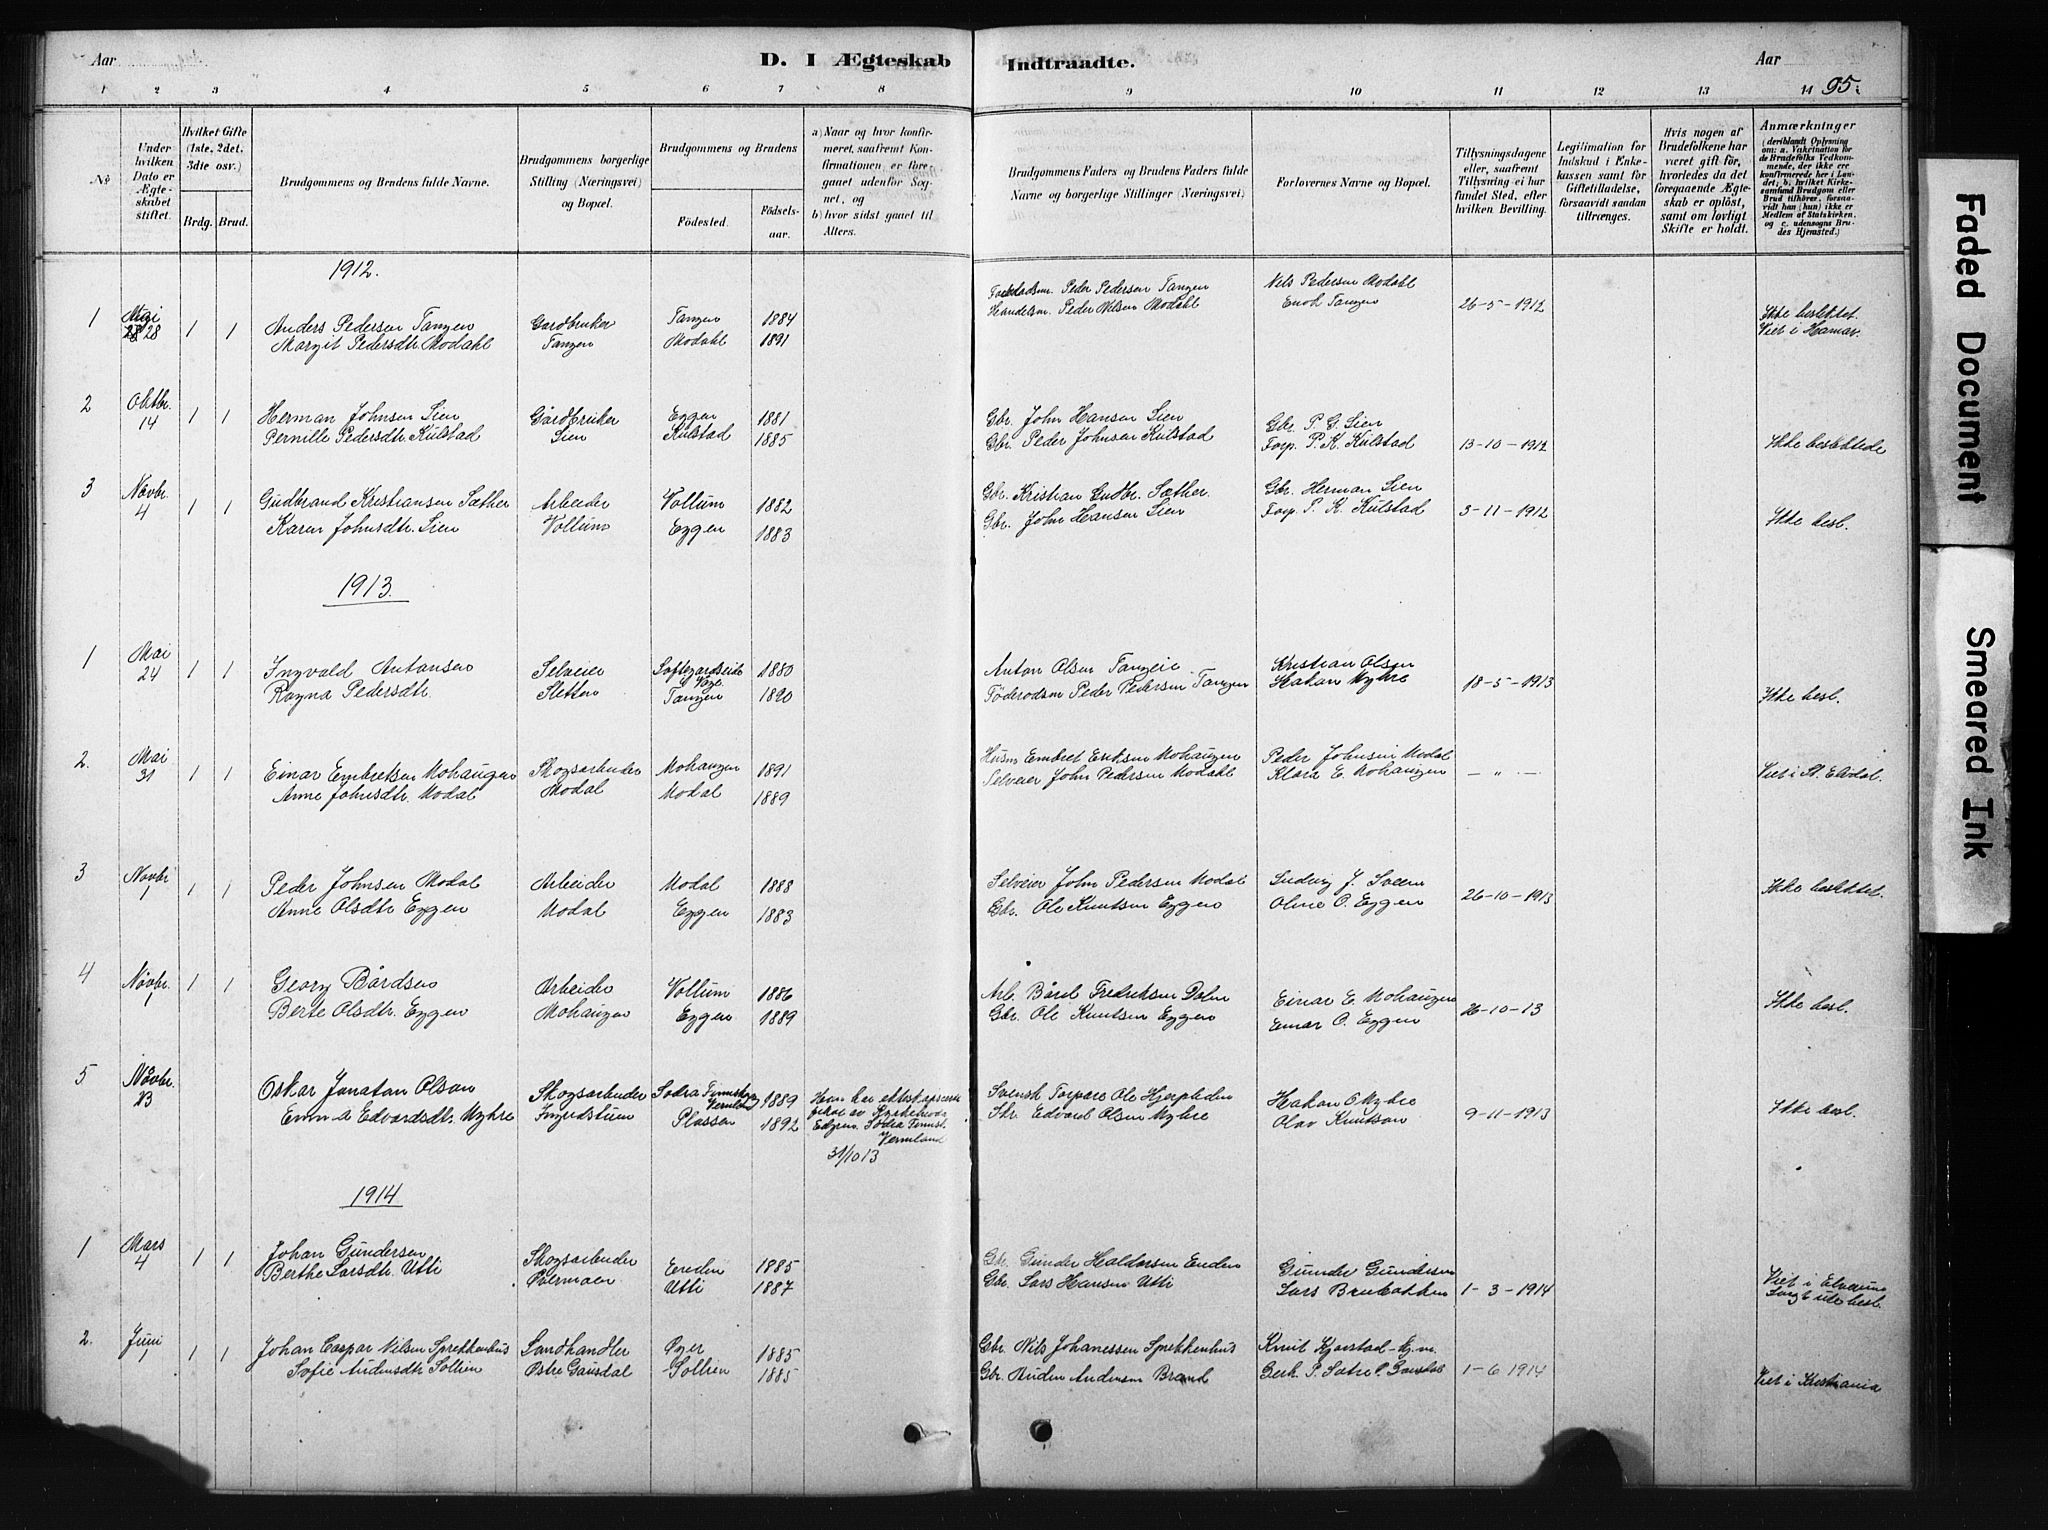 Aar
D. I Ægteskab
Indtraadte.
Aar
95.
1 2 3 4 5 6 7 8 9 10 11 12 13 14
No
Under hvilken Dato er Ægteskabet stiftet.
Hvilket Gifte (1ste, 2det, 3die osv.)
Brdg. Brud.
Brudgommens og Brudens fulde Navne.
Brudgommens borgerlige Stilling (Næringsvei) og Bopæl.
Brudgommens og Brudens
Födested.
Födselsaar.
a) Naar og hvor konfirmeret, saafremt Konfirmationen er foregaaet udenfor Sognet, og
b) hvor sidst gaaet til Alters.
Brudgommens Faders og Brudens Faders fulde Navne og borgerlige Stillinger (Næringsvei).
Forlovernes Navne og Bopæl.
Tillysningsdagene eller, saafremt Tillysning ei har fundet Sted, efter hvilken Bevilling.
Legitimation for Indskud i Enkekassen samt for Giftetilladelse, forsaavidt saadan tiltrænges.
Hvis nogen af Brudefolkene har været gift för, hvorledes da det foregaaende Ægteskab er oplöst, samt om lovligt Skifte er holdt.
Anmærkninger
(deriblandt Oplysning om: a. Vakcination for de Brudefolks Vedkommende, der ikke ere konfirmerede her i Landet; b. hvilket Kirkesamfund Brudgom eller Brud tilhörer, forsaavidt han (hun) ikke er Medlem af Statskirken, og c. udensogns Brudes Hjemsted.)
1912.
1 Mai 28 1 1 Anders Pedersen Tangen Gardbruker Tangen 1884 Peder Pedersen Tangen Nils Pedersen Modahl 26-5-1912 Ikke beslektet.
Margit Pedersdtr. Modahl Tangen Modahl 1891 Handelsm. Peder Nilsen Modahl Enok Tangen Viet i Hamar.
2 Oktbr. 14 1 1 Herman Johnsen Lien Gårdbruker Eggen 1881 Gbr. John Hansen Lien Gbr. P. G. Lien
Pernille Pedersdtr. Kulstad Lien Kulstad 1885 Gbr. Peder Johnsen Kulstad Forp. P. K. Kulstad 13-10-1912 Ikke beslektede
3 Novbr. 4 1 1 Gudbrand Kristiansen Sæther Arbeider Vollum 1882 Gbr. Kristian Gudbr. Sæther. Gbr. Herman Lien
Karen Johnsdtr. Lien Vollum Eggen 1883 Gbr. John Hansen Lien Forp. P. K. Kulstad 3-11-1912 Ikke besl.
1913.
1 Mai 24 1 1 Ingvald Antonsen Selveier 1880 Anton Olsen Tangeie Kristian Olsen
Ragna Pedersdtr. Sletten Tangen 1890 Föderodsm Peder Pedersen Tangen Hakan Myhre 18-5-1913 Ikke besl.
2. Mai 31 1 1 Einar Embretsen Mohaugen Skogsarbeider Mohaugen 1891 Husm Embret Eriksen Mohaugen Peder Johnsen Modal
Anne Johnsdtr. Modal Modal Modal 1889 Selveier John Pedersen Modahl Klara E. Mohaugen - " - Viet i St. Elvdal.
3 Novbr 1 1 1 Peder Johnsen Modal Arbeider Modal 1888 Selveier John Pedersen Modal Ludvig J. Sveen
Anne Olsdtr. Eggen Modal Eggen 1883 Gbr. Ole Knutsen Eggen Oline O. Eggen 26-10-1913 Ikke beslektet.
4 Novbr. 1 1 1 Georg Bårdsen Arbeider Vollum 1886 Arb. Bård Fredriksen Dalen Einar E. Mohaugen
Berte Olsdtr. Eggen Mohaugen Eggen 1889 Gbr. Ole Knutsen Eggen Einar O. Eggen 26-10-13 Ikke besl.
5 Novbr. 23 Oskar Jonatan Olson Skogsarbeider Södra Finnskoga Vermland 1889 Svensk Torpare Ole Hjerpleden Hakan O Myhre
Emma Edvardsdtr. Myhre Ingridstuen Plassen 1892 Skr. Edvard Olsen Myhre Olav Knutson 9-11-1913 Ikke besl.
Södra Finnsk. Vermland 31/10 13
1914
1 Mars 4 1 1 Johan Gundersen Skogsarbeider Enden 1885 Gbr. Gunder Haldorsen Enden Gunder Gundersen
Berthe Larsdtr. Utti Övermoen Utti 1887 Gbr. Lars Hansen Utti Lars Brubakken 1-3-1914 Viet i Elverum
2. Juni 1 1 1 Johan Caspar Nilsen Sprekkenhus Landhandler Öyer 1885 Gbr. Nils Johanessen Sprekkenhus Knut Kjorstad
Sofie Audensdtr. Sollien Östre Gausdal Sollien 1885 Gbr. Auden Andersen Brænd 1-6 1914 Viet i Kristiania
Faded Document
Smeared Ink